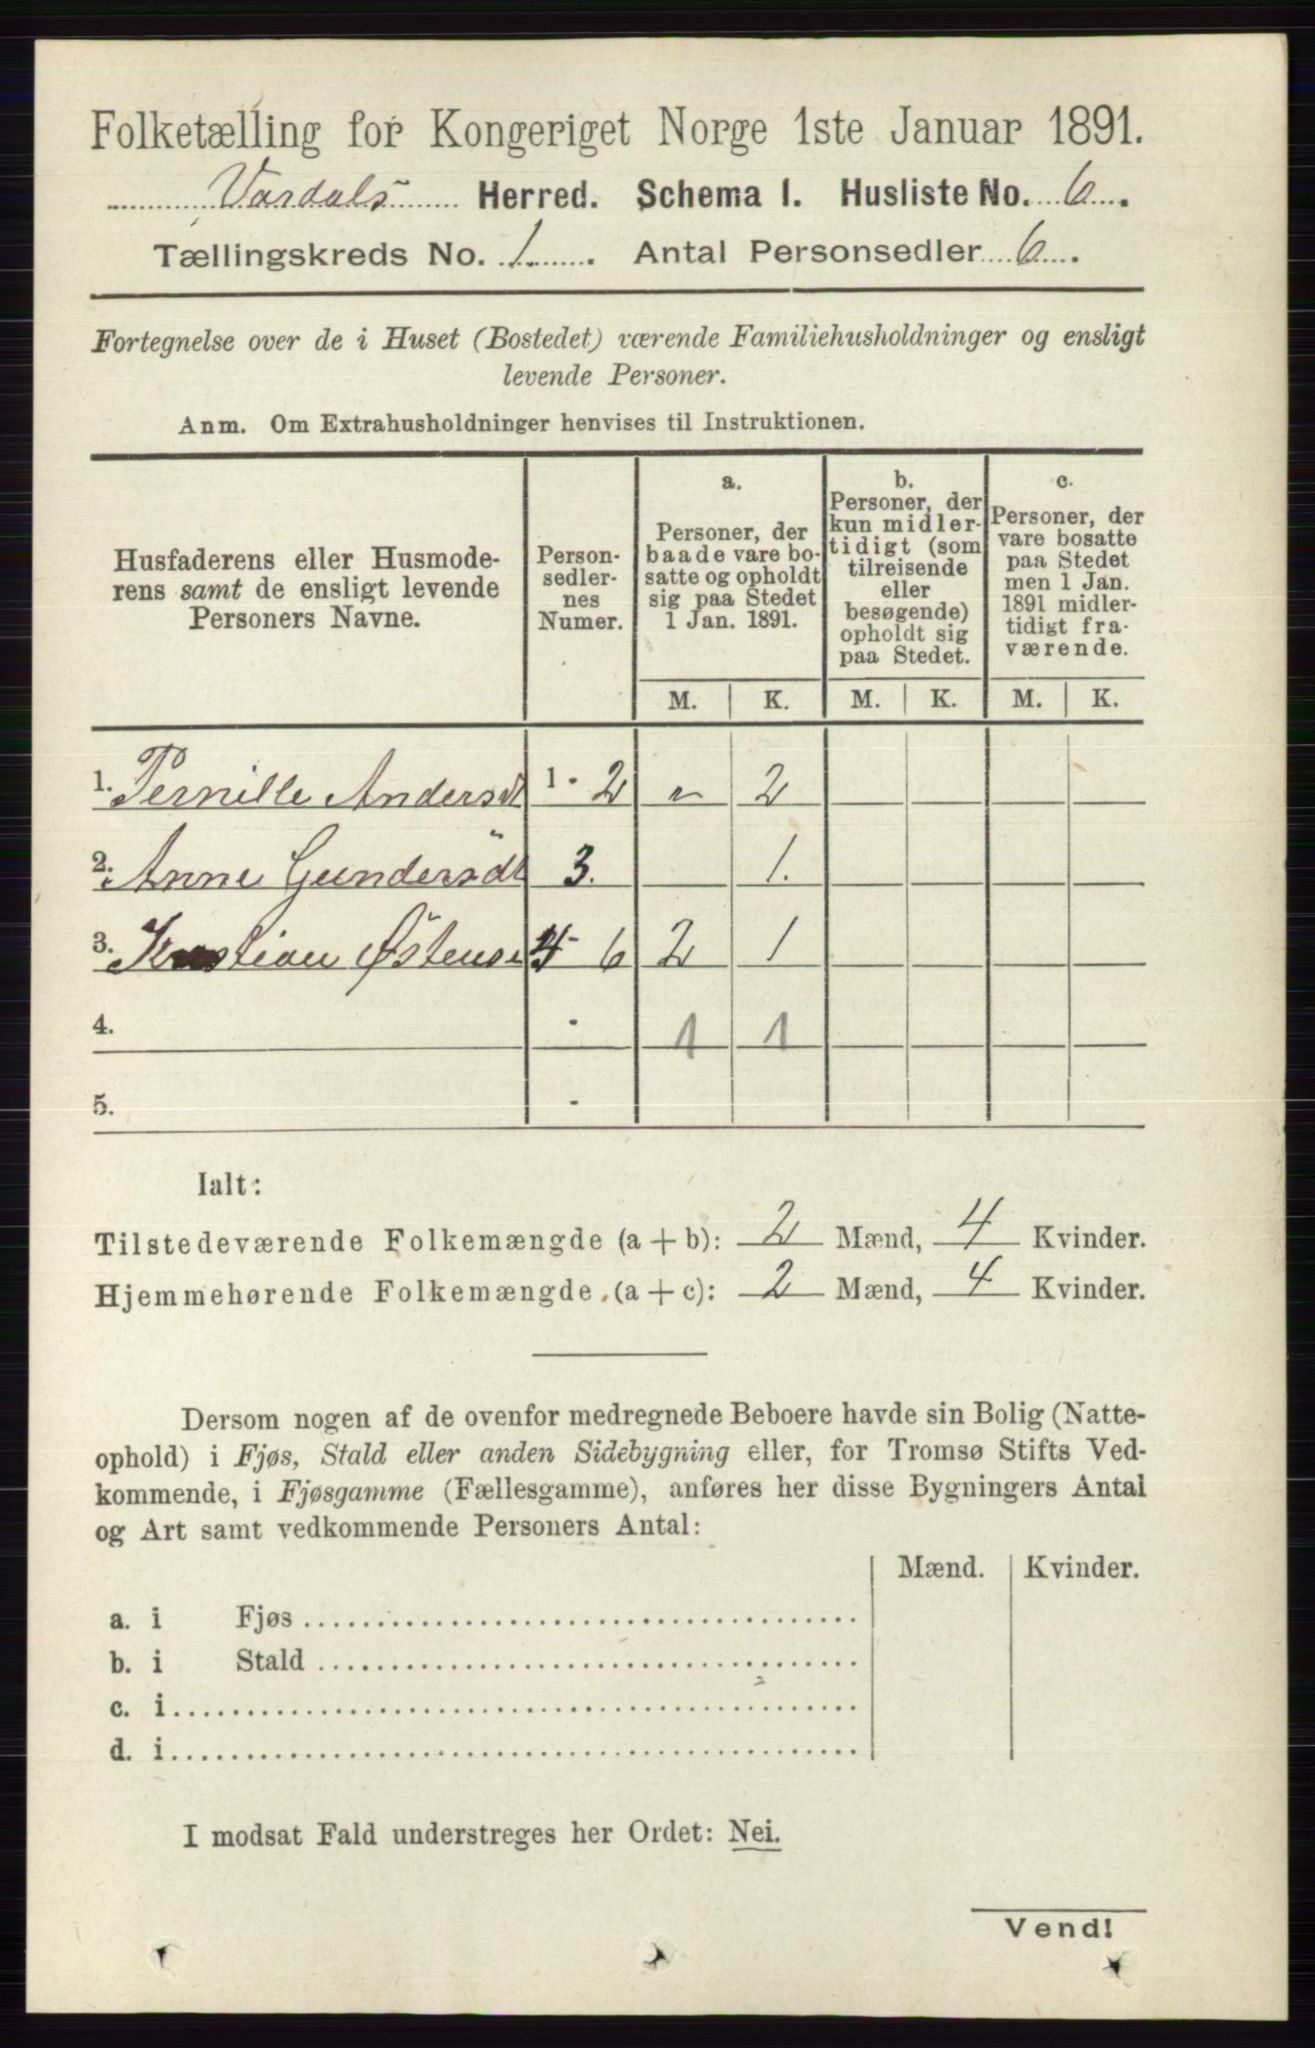 Folketælling for Kongeriget Norge 1ste Januar 1891.
Vardals Herred. Schema I. Husliste No. 6.
Tællingskreds No. 1. Antal Personsedler 6.
Fortegnelse over de i Huset (Bostedet) værende Familiehusholdninger og ensligt
levende Personer.
Anm. Om Extrahusholdninger henvises til Instruktionen.
Husfaderens eller Husmode-
rens samt de ensligt levende
Personers Navne.
Person-
sedler-
nes
Numer.
a.
Personer, der
baade vare bo-
satte og opholdt
sig paa Stedet
1 Jan. 1891.
b.
Personer, der
kun midler-
tidigt (som
tilreisende
eller
besøgende)
opholdt sig
paa Stedet.
c.
Personer, der
vare bosatte
paa Stedet
men 1 Jan.
1891 midler-
tidigt fra-
værende.
M. K. M. K. M. K.
1. Pernille Andersdt 1 - 2 - 2
2. Anne Gundersdt 3. 1.
3. Kristian Østensen 4 - 6 2 1
4. - 1 1
5. -
Ialt:
Tilstedeværende Folkemængde (a + b): 2 Mænd, 4 Kvinder.
Hjemmehørende Folkemængde (a + c): 2 Mænd, 4 Kvinder.
Dersom nogen af de ovenfor medregnede Beboere havde sin Bolig (Natte-
ophold) i Fjøs, Stald eller anden Sidebygning eller, for Tromsø Stifts Ved-
kommende, i Fjøsgamme (Fællesgamme), anføres her disse Bygningers Antal
og Art samt vedkommende Personers Antal:
Mænd. Kvinder.
a. i Fjøs
b. i Stald
c. i
d. i
I modsat Fald understreges her Ordet: Nei.
Vend!